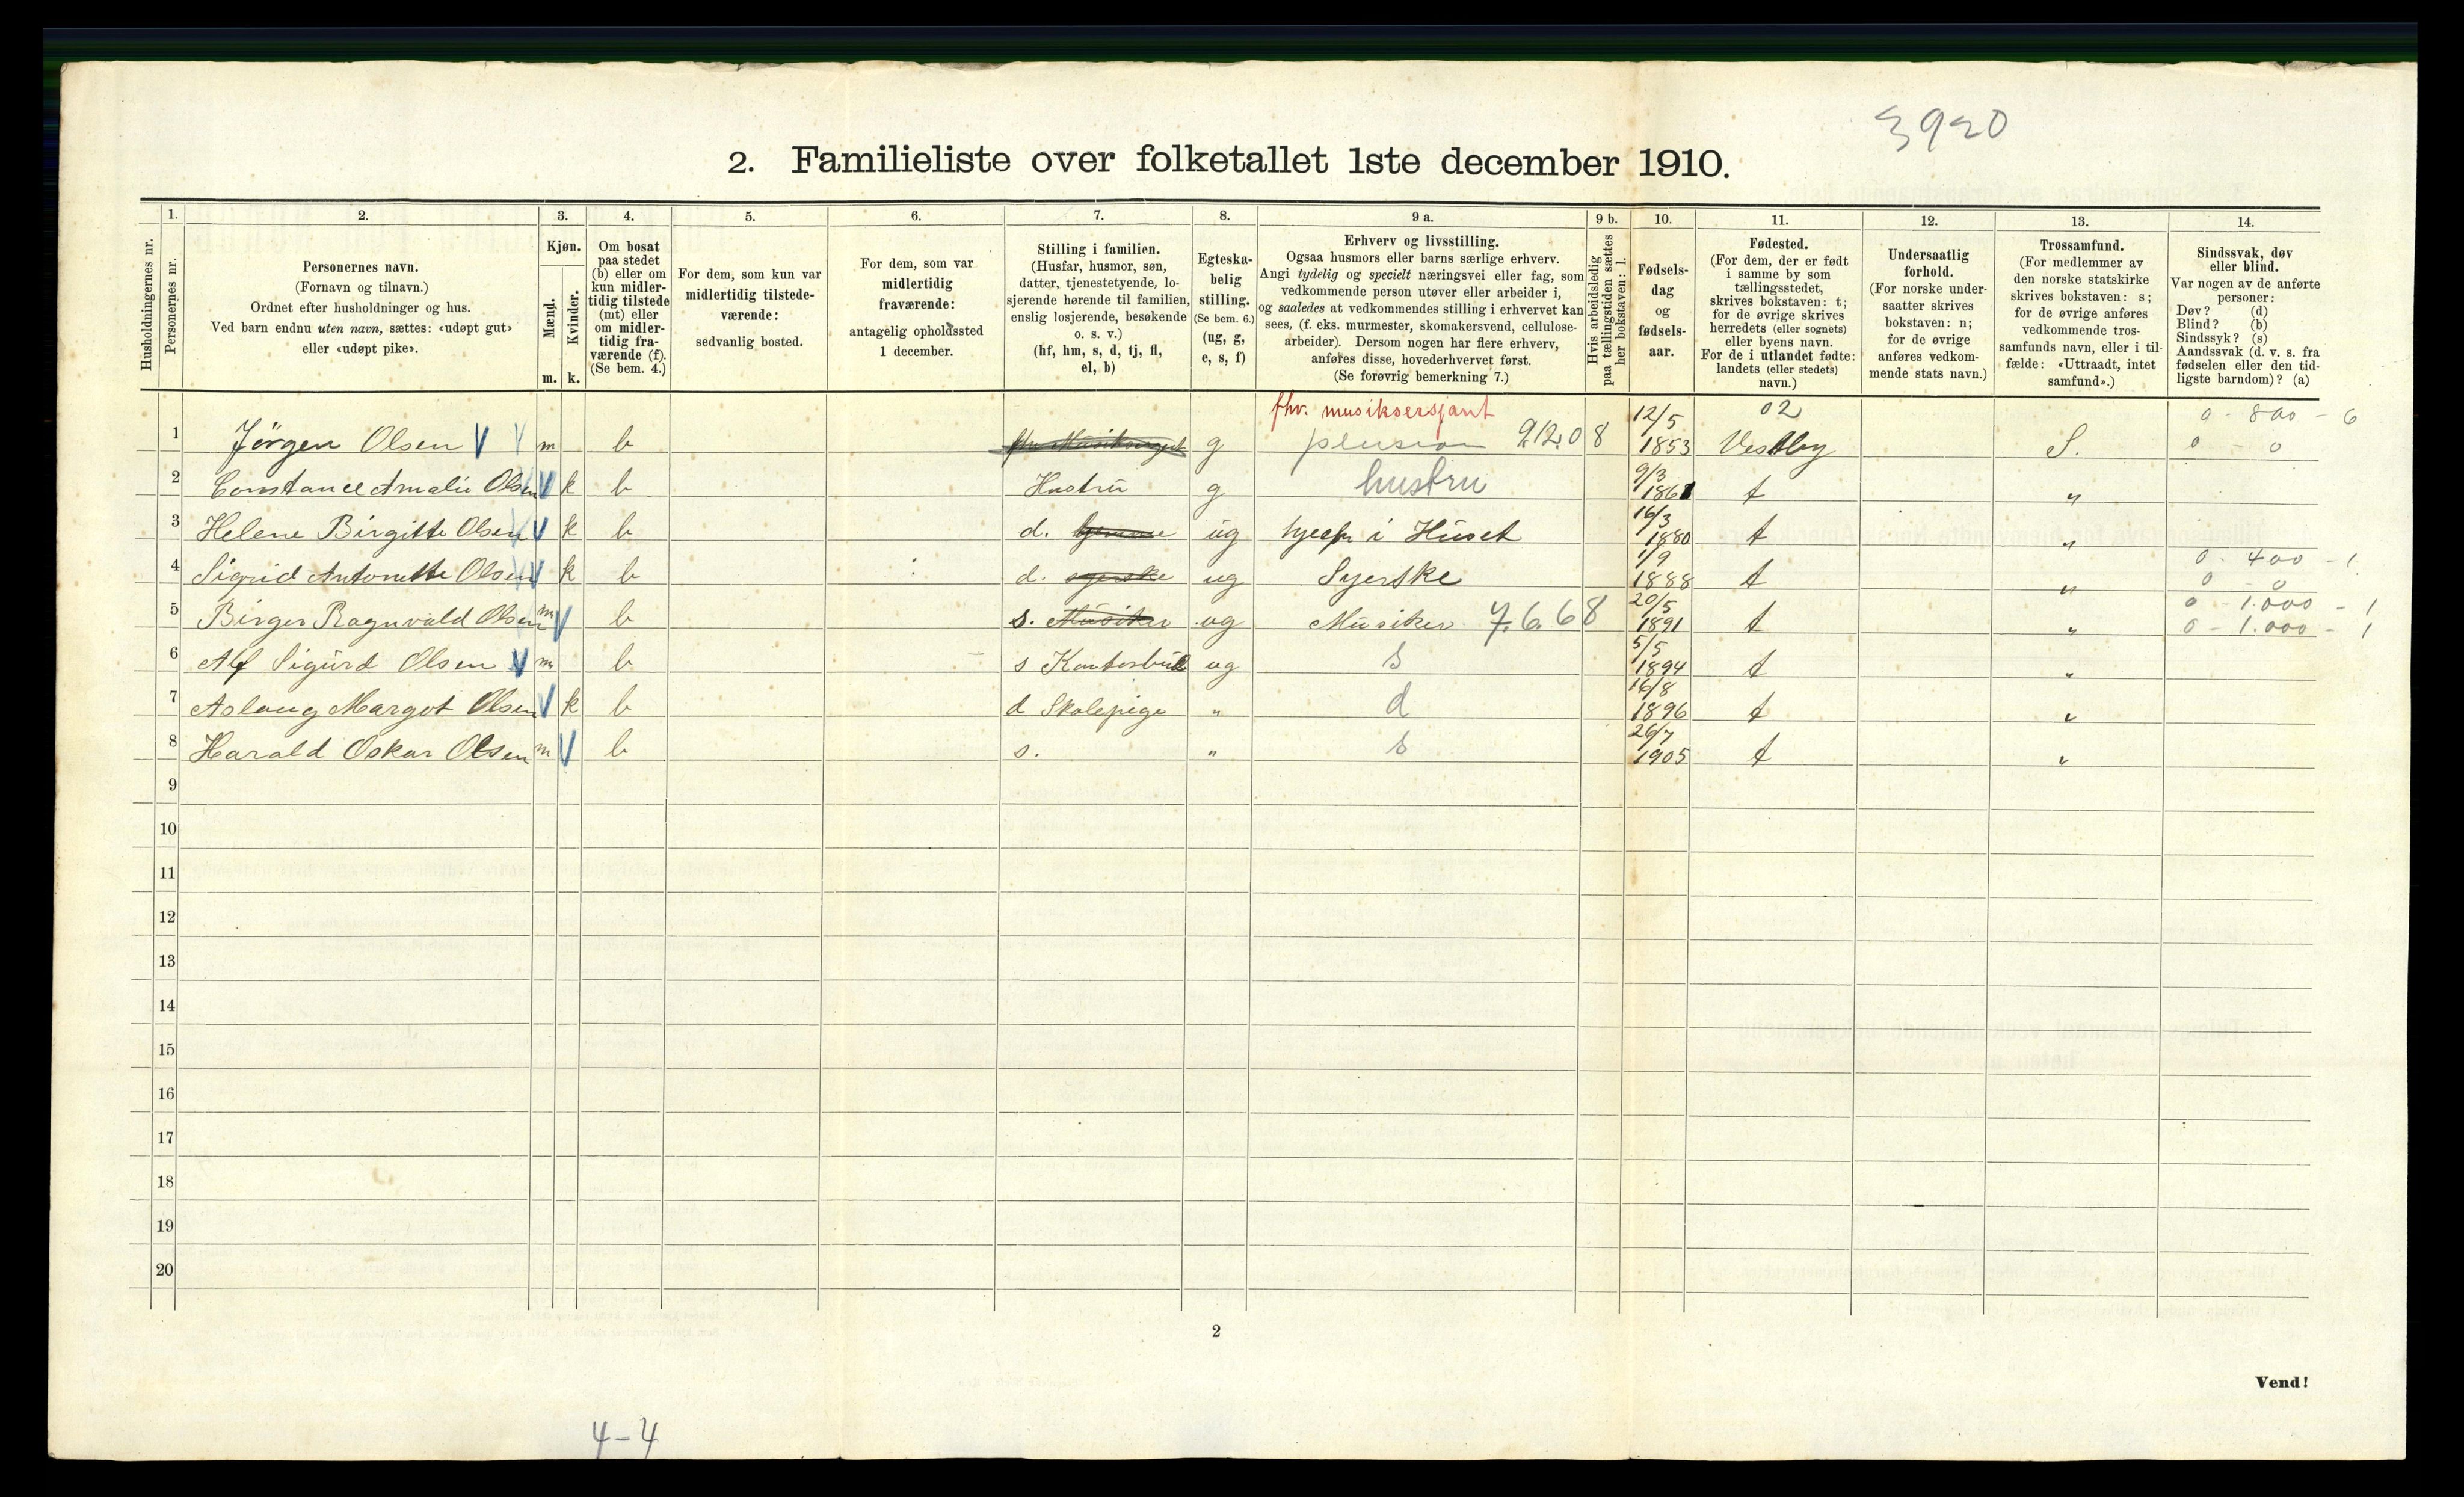 3920
2. Familieliste over folketallet 1ste december 1910.
Husholdningernes nr.
1.
Personernes nr.
2.
Personernes navn.
(Fornavn og tilnavn.)
Ordnet efter husholdninger og hus.
Ved barn endnu uten navn, sættes: «udøpt gut»
eller «udøpt pike».
3.
Kjøn.
Mænd.
Kvinder.
m. k.
4.
Om bosat
paa stedet
(b) eller om
kun midler-
tidig tilstede
(mt) eller
om midler-
tidig fra-
værende (f).
(Se bem. 4.)
5.
For dem, som kun var
midlertidig tilstede-
værende:
sedvanlig bosted.
6.
For dem, som var
midlertidig
fraværende:
antagelig opholdssted
1 december.
7.
Stilling i familien.
(Husfar, husmor, søn,
datter, tjenestetyende, lo-
sjerende hørende til familien,
enslig losjerende, besøkende
o. s. v.)
(hf, hm, s, d, tj, fl,
el, b)
8.
Egteska-
belig
stilling.
(Se bem. 6.)
(ug, g,
e, s, f)
9 a.
Erhverv og livsstilling.
Ogsaa husmors eller barns særlige erhverv.
Angi tydelig og specielt næringsvei eller fag, som
vedkommende person utøver eller arbeider i,
og saaledes at vedkommendes stilling i erhvervet kan
sees, (f. eks. murmester, skomakersvend, cellulose-
arbeider). Dersom nogen har flere erhverv,
anføres disse, hovederhvervet først.
(Se forøvrig bemerkning 7.)
9 b.
Hvis arbeidsledig
paa tællingstiden sættes
her bokstaven: l.
10.
Fødsels-
dag
og
fødsels-
aar.
11.
Fødested.
(For dem, der er født
i samme by som
tællingsstedet,
skrives bokstaven: t;
for de øvrige skrives
herredets (eller sognets)
eller byens navn.
For de i utlandet fødte:
landets (eller stedets)
navn.)
12.
Undersaatlig
forhold.
(For norske under-
saatter skrives
bokstaven: n;
for de øvrige
anføres vedkom-
mende stats navn.)
13.
Trossamfund.
(For medlemmer av
den norske statskirke
skrives bokstaven: s;
for de øvrige anføres
vedkommende tros-
samfunds navn, eller i til-
fælde: «Uttraadt, intet
samfund».)
14.
Sindssvak, døv
eller blind.
Var nogen av de anførte
personer:
Døv? (d)
Blind? (b)
Sindssyk? (s)
Aandssvak (d. v. s. fra
fødselen eller den tid-
ligste barndom)? (a)
fhv. musiksersjant 12/5 02 0 - 800 - 6
1 Jörgen Olsen V V m b g pension 912.08 1853 Vestby S. 0 0
2 Constance Amalie Olsen V k b Hustru g hustru 9/3 1861 t "
3 Helene Birgitte Olsen V k b d. ug hjelp i Huset 16/3 1880 t "
0 - 400 - 1
4 Sigrid Antonette Olsen V k b d. syerske ug Syerske 1/9 1888 t " 0 - 0
0 - 1.000 - 1
5 Birger Ragnvald Olsen m V b s. Musiker ug Musiker 7.6.68 20/5 1891 t " 0 - 1.000 - 1
6 Alf Sigurd Olsen V m b s Kontorbud ug s 5/5 1894 t "
7 Aslaug Margot Olsen V k b d Skolepige " d 16/8 1896 t "
8 Harald Oskar Olsen m V b s. " s 26/7 1905 t "
9
10
11
12
13
14
15
16
17
18
19
20
2
Vend!
4-4